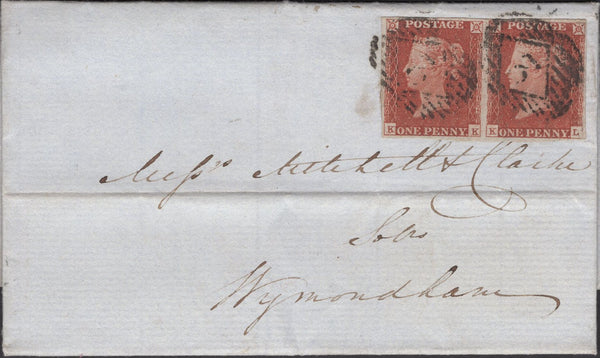 POSTAGE POSTAGE
K ONE PENNY K K ONE PENNY L
Messrs Mitchell & Clarke
Solrs
Wymondham